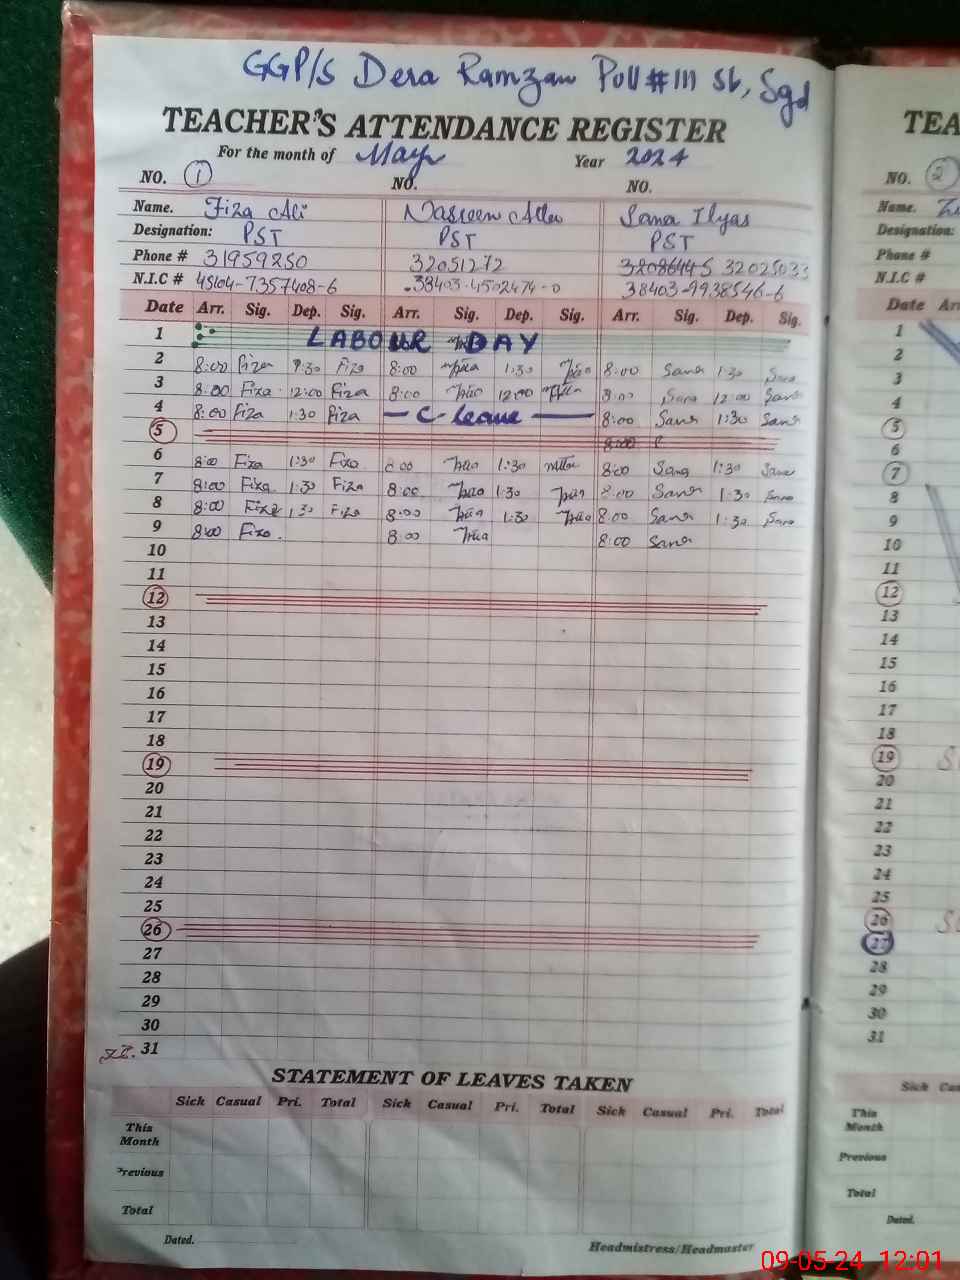 GGP/S Dera Ramzan Pull #111 Sb, Sgd
TEACHER'S ATTENDANCE REGISTER
For the month of May Year 2024
NO. 1 NO. NO.
Name. Fiza Ali Nasreen Sana Ilyas
Designation: PST PST PST
Phone # 31959250 32051272 32086445 32025033
N.I.C # 45104-7357408-6 38403-4502474-0 38403-9938546-6
Date Arr. Sig. Dep. Sig. Arr. Sig. Dep. Sig. Arr. Sig. Dep. Sig.
1 LABOUR DAY
2 8:00 Fiza 1:30 Fiza 8:00 1:30 8:00 Sana 1:30 Sana
3 8:00 Fiza 12:00 Fiza 8:00 12:00 8:00 Sana 12:00 Sana
4 8:00 Fiza 1:30 Fiza C-leave 8:00 Sana 1:30 Sana
5 8:00
6 8:00 Fiza 1:30 Fiza 8:00 1:30 8:00 Sana 1:30 Sana
7 8:00 Fiza 1:30 Fiza 8:00 1:30 8:00 Sana 1:30 Sana
8 8:00 Fiza 1:30 Fiza 8:00 1:30 8:00 Sana 1:30 Sana
9 8:00 Fiza. 8:00 8:00 Sana
10
11
12
13
14
15
16
17
18
19
20
21
22
23
24
25
26
27
28
29
30
31
STATEMENT OF LEAVES TAKEN
Sick Casual Pri. Total Sick Casual Pri. Total Sick Casual Pri. Total
This Month
Previous
Total
Dated.
Headmistress/Headmaster
TEA
NO. 2
Name.
Designation:
Phone #
N.I.C #
Date Arr
1
2
3
4
5
6
7
8
9
10
11
12
13
14
15
16
17
18
19
20
21
22
23
24
25
26
27
28
29
30
31
Sick Cas
This Month
Previous
Total
Dated.
09-05-24 12:01